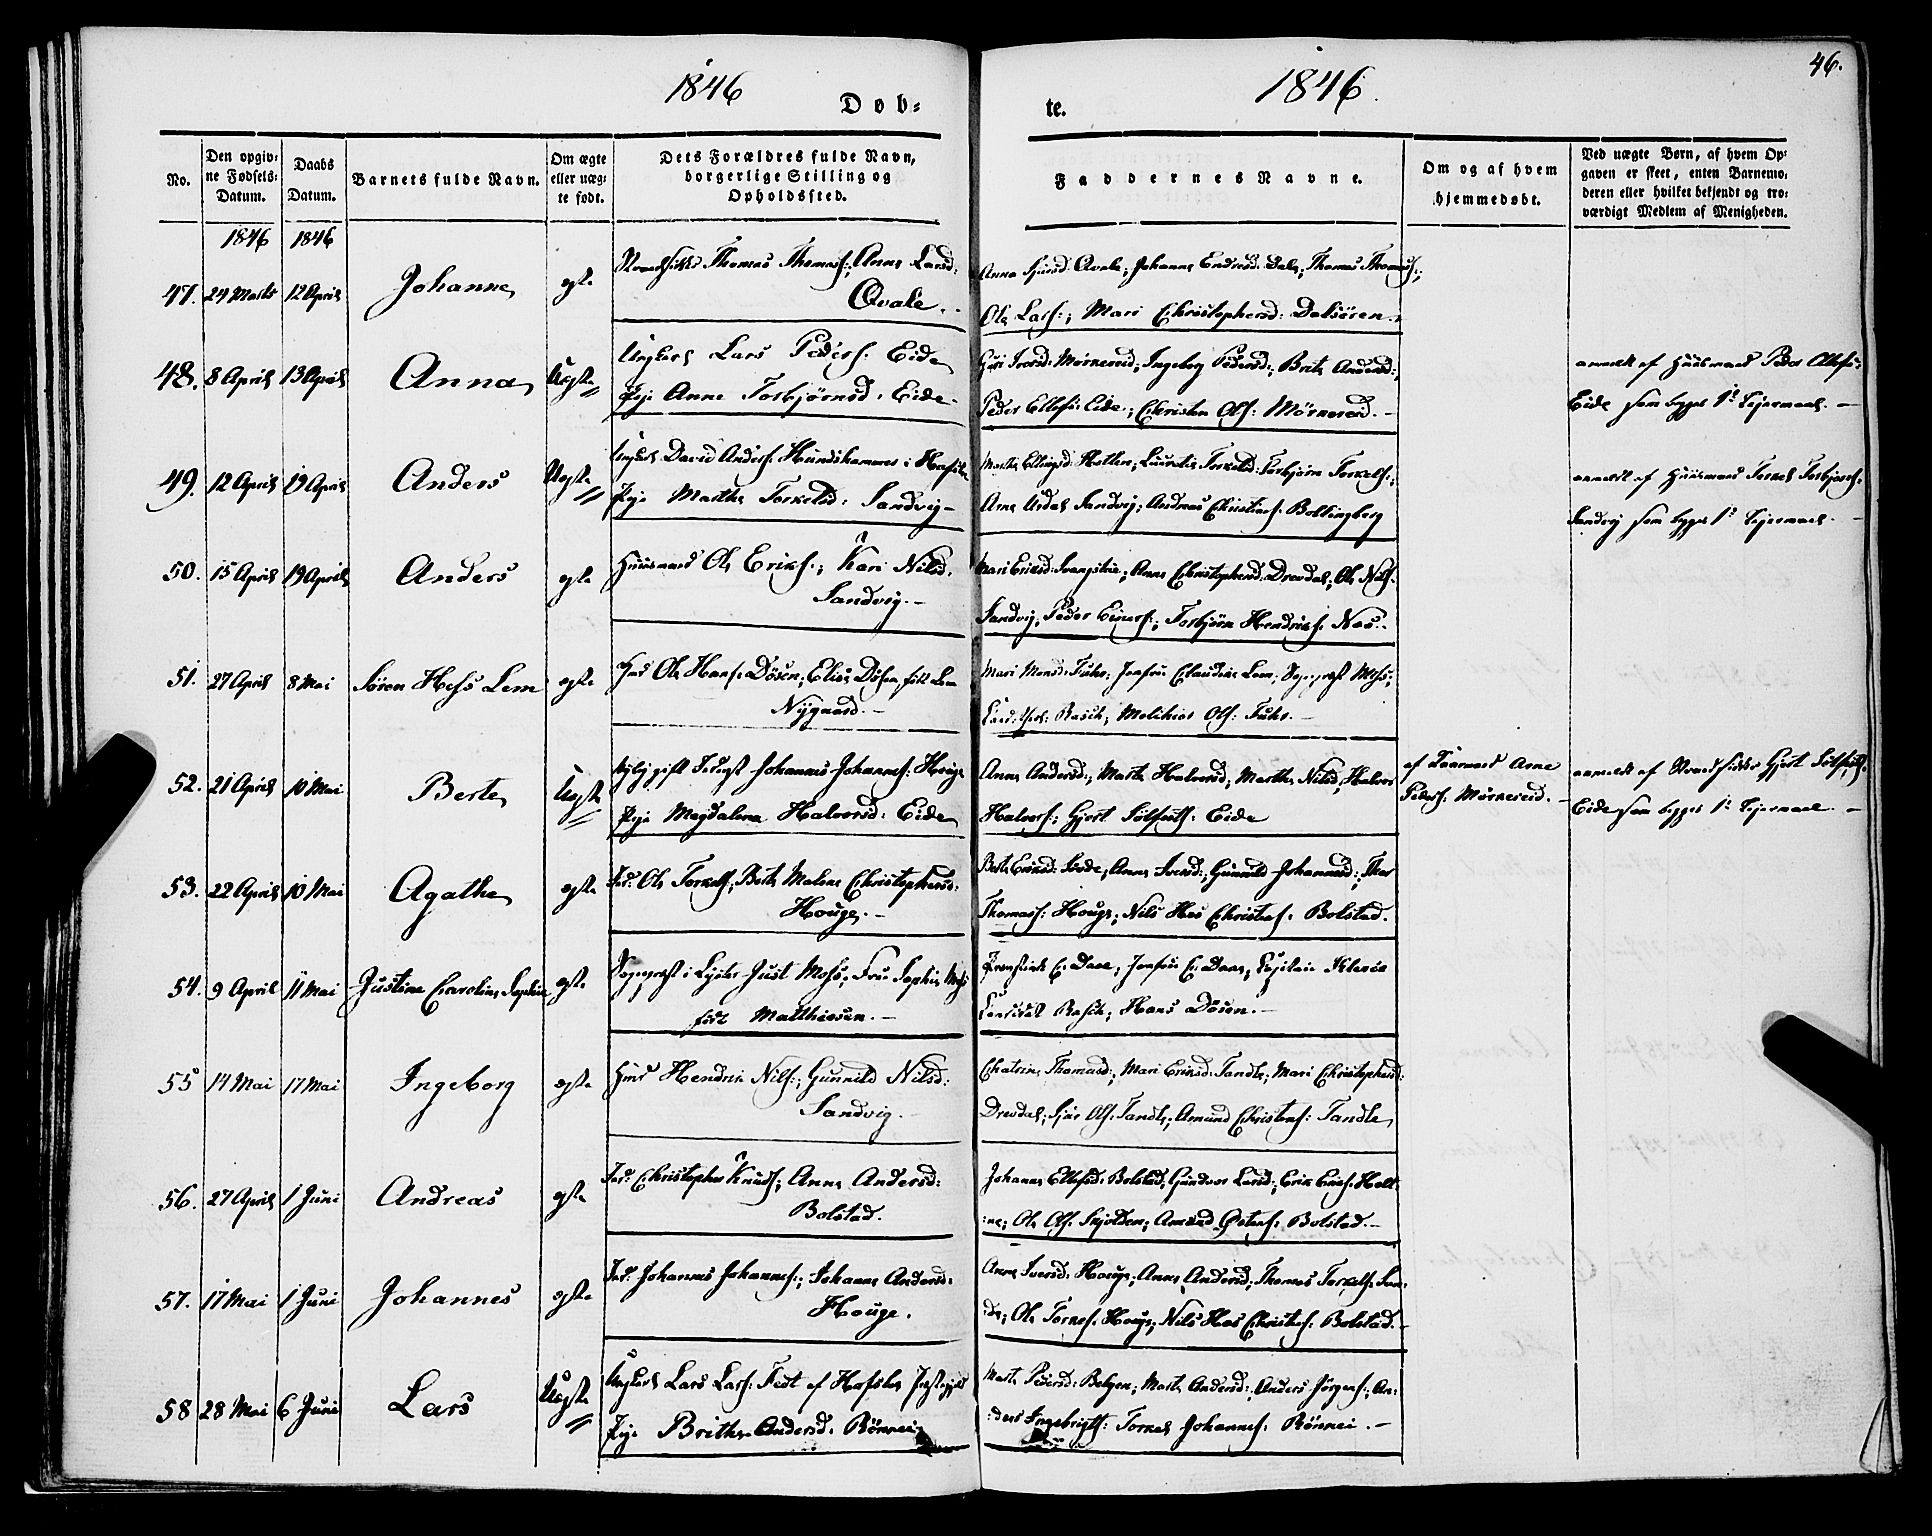 1846
1846.
46.
Døb-
te.
No.
Den opgiv-
ne Fødsels-
Datum.
Daabs
Datum.
Barnets fulde Navn.
Om ægte
eller uæg-
te født.
Dets Forældres fulde Navn,
borgerlige Stilling og
Opholdssted.
Faddernes Navne.
Om og af hvem
hjemmedøbt.
Ved uægte Børn, af hvem Op-
gaven er skeet, enten Barnemo-
deren eller hvilket bekjendt og tro-
værdigt Medlem af Menigheden.
1846 1846
47. 24 Marts 12 April Johanne egte
Strandsidder Thomas Thomas:; Anna Larsd:
Qvale.
Anna Qvale; Johanne Endresd: Dale; Thomas Thomas:;
Ole Lars:; Mari Christophersd: Dalsøren.
48. 8 April 13 April Anna Uegte
Ungkarl Lars Peders: Eide
Pige Anne Torbjørnsd: Eide
Iversd: Mørkereid; Ingeborg Pedersd:; Brita
Peder Ellefs: Eide; Christen Ols: Mørkereid.
anmeldt af Huusmand Peder Ellefs:
Eide som begges 1ste Leiermaal.
49. 12 April 19 April Anders Uegte
Ungkarl David Anders: Hundshammer i Hafslo
Pige Marthe Torkelsd: Sandvig
Torkelsd: Torbjørn Torkels:;
Arne Sandvig; Andreas Christens: Bollingberg
anmeldt af Huusmand Torkel Torbjørns:
Sandvig som begges 1ste Leiermaal.
50. 15 April 19 April Anders egte
Huusmand Ole Eriks:; Kari Nilsd:
Sandvig.
Mari Eriksd: Anne Christophersd: Drevdal; Ole Nils:
Sandvig; Peder Einers:; Torbjørn Hendriks: Næs.
51. 27 April 8 Mai Søren Hess Lem egte
Ole Hans: Døsen; Elise Døsen, født Lem
Nygaard.
Mari Monsd: Fuhr; Jomfru Claudine Lem; Sognepræst
Rasch; Melchior Ols: Fuhr.
52. 21 April 10 Mai Berte Uegte
Johannes Johannes: Houge
Pige Magdalena Halvorsd: Eide
Anna Andersd:; Marte Halvorsd; Marthe Nilsd; Halvor
Halvors: Gjert Eide
af Arne
Peders: Mørkereid.
anmeldt af Strandsidder Gjert
Eide som begges 1ste Leiermaal.
53. 22 April 10 Mai Agathe egte
Ole Torkels:; Berte Malene Christophersd:
Houge.
Berte Eriksd: Anna Iversd:; Gunnild Johannesd:
Thomas: Houge; Nils Has Christens: Bolstad.
54. 9 April 11 Mai Justine Caroline Sophie egte
Sognepræst i Lyster Just Fru Sophie
født Matthiesen.
Daae; Jomfru Daae;
Rasch; Hans Døsen.
55 14 Mai 17 Mai Ingeborg egte
Hendrik Nils:; Gunnild Nilsd:
Sandvig.
Chatrine Thomasd:; Mari Eriksd: Tandle; Mari Christophersd:
Drevdal; Ols: Tandle; Amund Christens: Tandle
56. 27 April 1 Juni Andreas egte
Christopher Knuds:; Anna Andersd:
Bolstad.
Johanne Ellefsd: Bolstad; Larsd:; Erik
Ole Ols: Skjolden; Amund Bolstad.
57. 17 Mai 1 Juni Johannes egte
Johannes Johannes:; Johanne Andersd:
Houge.
Anna Iversd: Houge; Anna Andersd; Thomas Torkels:
Ole Houge; Nils Has Christens: Bolstad.
58 28 Mai 6 Juni Lars Uegte
Ungkarl Lars Lars: Fest af Hafslo Prestegjeld
Pige Brithe Andersd: Rønnei
Marte Pedersd: Bolgen; Marte Andersd:; Anders Jørgens:; An-
ders Ingebrigts: Torkel Johannes: Rønnei.